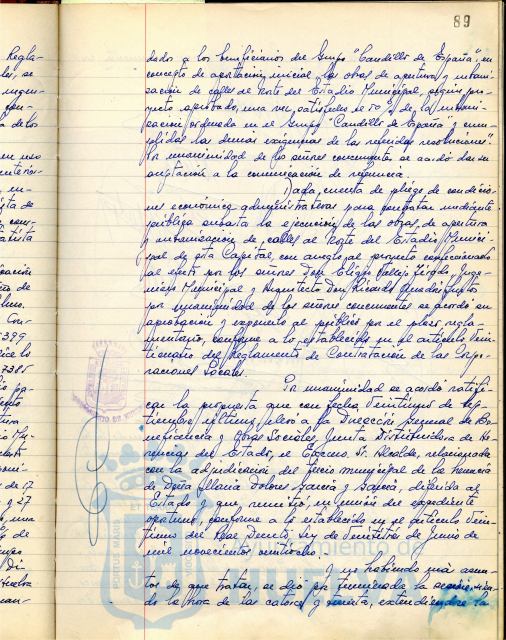 89
dados a los beneficiarios del Grupo "Caudillo de España", en
concepto de aportación inicial las obras de apertura y urbani-
zación de calles al Norte del Estadio Municipal, según pro-
yecto aprobado, una vez satisfechos el 50% de la urbani-
zación ordenada en el Grupo "Caudillo de España" y cum-
plidas las demás exigencias de las referidas resoluciones".
Por unanimidad de los señores concurrentes se acordó dar su
aceptación a la comunicación de referencia.
Dada cuenta de pliego de condicio-
nes económico administrativas para contratar mediante
pública subasta la ejecución de las obras de apertura
y urbanización de calles al Norte del Estadio Munici-
pal de esta Capital, con arreglo al proyecto confeccionado
al efecto por los señores Don Eligio Inge-
niero Municipal y Arquitecto Don Ricardo
por unanimidad de los señores concurrentes se acordó su
aprobación y exponerlo al público por el plazo regla-
mentario, conforme a lo establecido en el artículo vein-
ticuatro del Reglamento de Contratación de las Corpo-
raciones Locales.
Por unanimidad se acordó ratifi-
car la propuesta que con fecha veintiuno de sep-
tiembre último, elevó a la Dirección General de Be-
neficencia y Obras Sociales, Junta Distribuidora de He-
rencias del Estado, el Excmo. Sr. Alcalde, relacionada
con la adjudicación del tercio municipal de la herencia
de Doña María Dolores García y García, diferida al
Estado y que remitió, en unión del expediente
oportuno, conforme a lo establecido en el artículo vein-
tiuno del Real Decreto Ley de veintitres de Junio de
mil novecientos veintiocho.
Y no habiendo más asun-
tos de que tratar, se dió por terminada la sesión, sien-
do la hora de las catorce y treinta, extendiéndose la